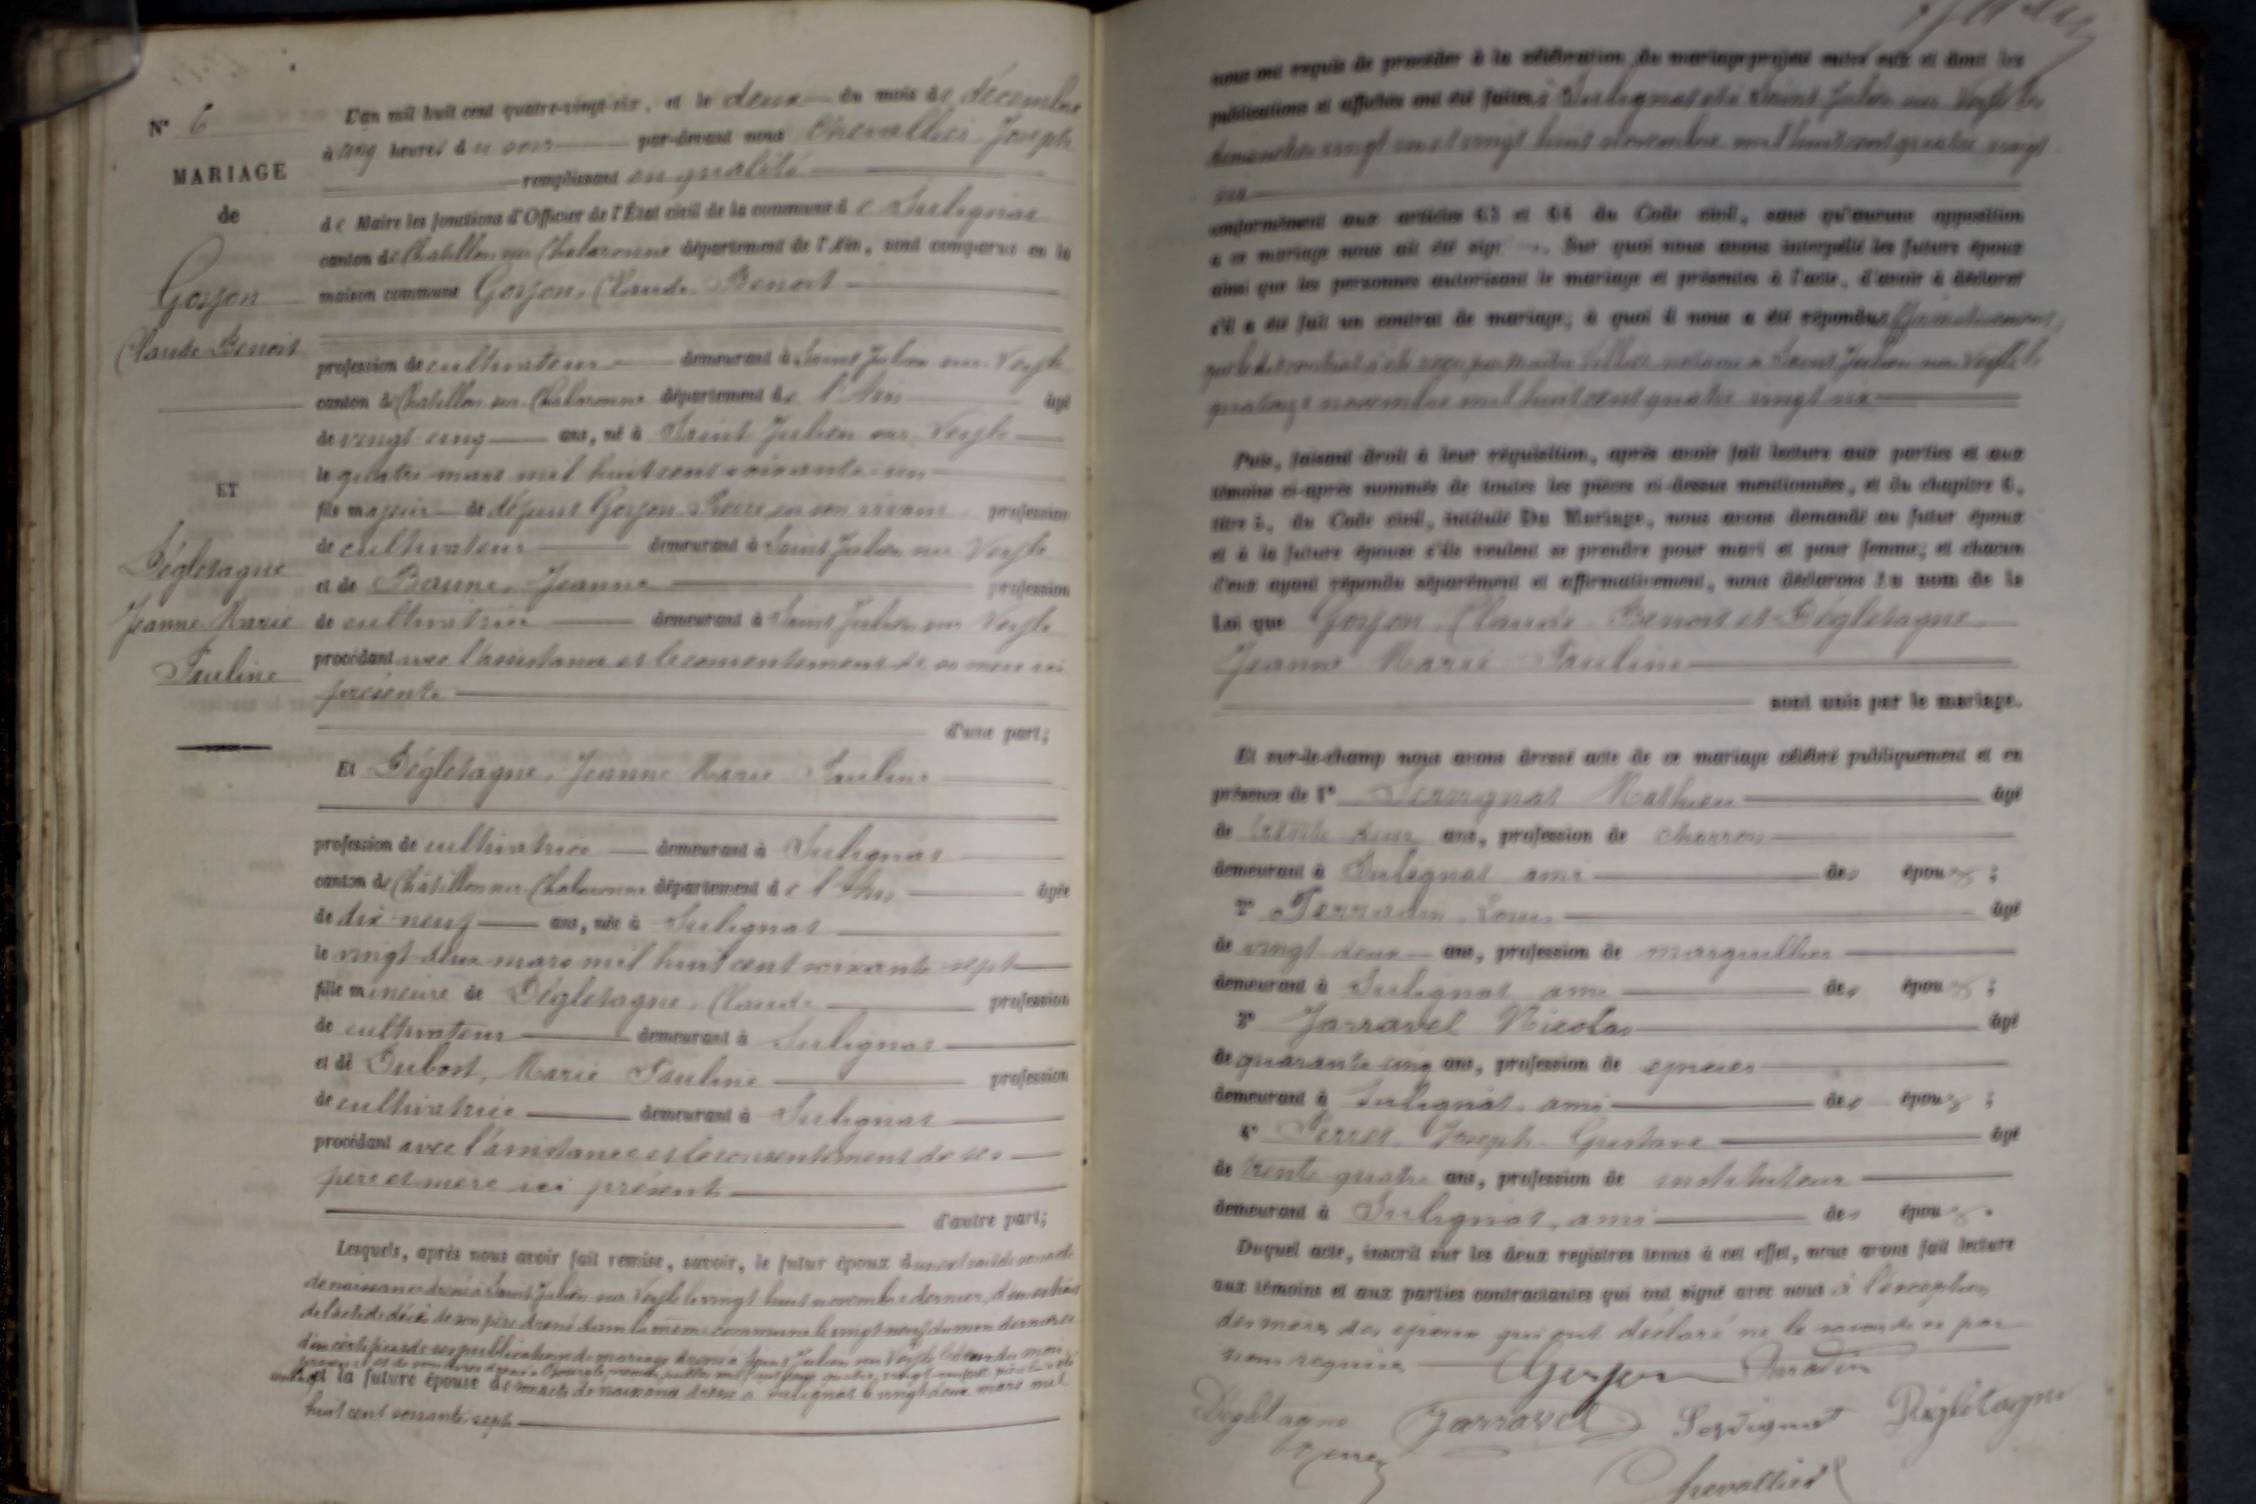 N° 6
MARIAGE
de
Gorjon
Claude Benoit
ET
Dégletagne
Jeanne Marie
Pauline
L'an mil huit cent quatre-vingt-six, et le deux du mois de décembre
à cinq heures du soir par-devant nous Chevallier Joseph
remplissant en qualité
de Maire les fonctions d'Officier de l'État civil de la commune de Sulignat
canton de Chatillon sur Chalaronne département de l'Ain, sont comparus en la
maison commune Gorjon, Claude Benoit
profession de cultivateur demeurant à Saint Julien sur Veyle
canton de Chatillon sur Chalaronne département de l'Ain âgé
de vingt cinq ans, né à Saint Julien sur Veyle
le quatre mars mil huit cent soixante un
fils majeur de défunt Gorjon Pierre, en son vivant profession
de cultivateur demeurant à Saint Julien sur Veyle
et de Baune, Jeanne profession
de cultivatrice demeurant à Saint Julien sur Veyle
procédant avec l'assistance et le consentement de sa mère ici
présente
d'une part;
Et Dégletagne, Jeanne Marie Pauline
profession de cultivatrice demeurant à Sulignat
canton de Châtillon sur Chalaronne département de l'Ain âgée
de dix-neuf ans, née à Sulignat
le vingt-deux mars mil huit cent soixante-sept
fille mineure de Dégletagne, Claude profession
de cultivateur demeurant à Sulignat
et de Dubost, Marie Pauline profession
de cultivatrice demeurant à Sulignat
procédant avec l'assistance et le consentement de ses
père et mère ici présents
d'autre part;
Lesquels, après nous avoir fait remise, savoir, le futur époux d'un extrait de son acte
de naissance dressé à Saint Julien sur Veyle le vingt huit novembre dernier, d'un extrait
de l'acte de décès de son père dressé dans la même commune le vingt neuf du mois dernier
d'un certificat de ses publications de mariage dressé à Saint Julien sur Veyle le deux du mois
et la future épouse de son acte de naissance dressé à Sulignat le vingt deux mars mil
huit cent soixante-sept
nous ont requis de procéder à la célébration du mariage projeté entre eux et dont les
publications et affiches ont été faites à Sulignat et à Saint Julien sur Veyle les
dimanches vingt un et vingt huit novembre mil huit cent quatre vingt
six
conformément aux articles 63 et 64 du Code civil, sans qu'aucune opposition
à ce mariage nous ait été sig. Sur quoi nous avons interpellé les futurs époux
ainsi que les personnes autorisant le mariage et présentes à l'acte, d'avoir à déclarer
s'il a été fait un contrat de mariage; à quoi il nous a été répondu affirmativement,
que le dit contrat a été reçu par maître notaire à Saint Julien sur Veyle le
quatorze novembre mil huit cent quatre vingt six
Puis, faisant droit à leur réquisition, après avoir fait lecture aux parties et aux
témoins ci-après nommés de toutes les pièces ci-dessus mentionnées, et du chapitre 6,
titre 5, du Code civil, intitulé Du Mariage, nous avons demandé au futur époux
et à la future épouse s'ils veulent se prendre pour mari et pour femme; et chacun
d'eux ayant répondu séparément et affirmativement, nous déclarons au nom de la
Loi que Gorjon, Claude Benoit et Dégletagne
Jeanne Marie Pauline
sont unis par le mariage.
Et sur-le-champ nous avons dressé acte de ce mariage célébré publiquement et en
présence de 1° Mathieu âgé
de trente deux ans, profession de charron
demeurant à Sulignat ami des époux;
2° Louis âgé
de vingt-deux ans, profession de marguillier
demeurant à Sulignat ami des époux;
3° Jarravel Nicolas âgé
de quarante cinq ans, profession de épicier
demeurant à Sulignat, ami des époux;
4° Perret Joseph Gustave âgé
de trente quatre ans, profession de instituteur
demeurant à Sulignat, ami des époux.
Duquel acte, inscrit sur les deux registres tenus à cet effet, nous avons fait lecture
aux témoins et aux parties contractantes qui ont signé avec nous à l'exception
des mères des époux qui ont déclaré ne le savoir de ce par
nous requises
Gorjon
Dégletagne Jarravel Dégletagne
Chevallier